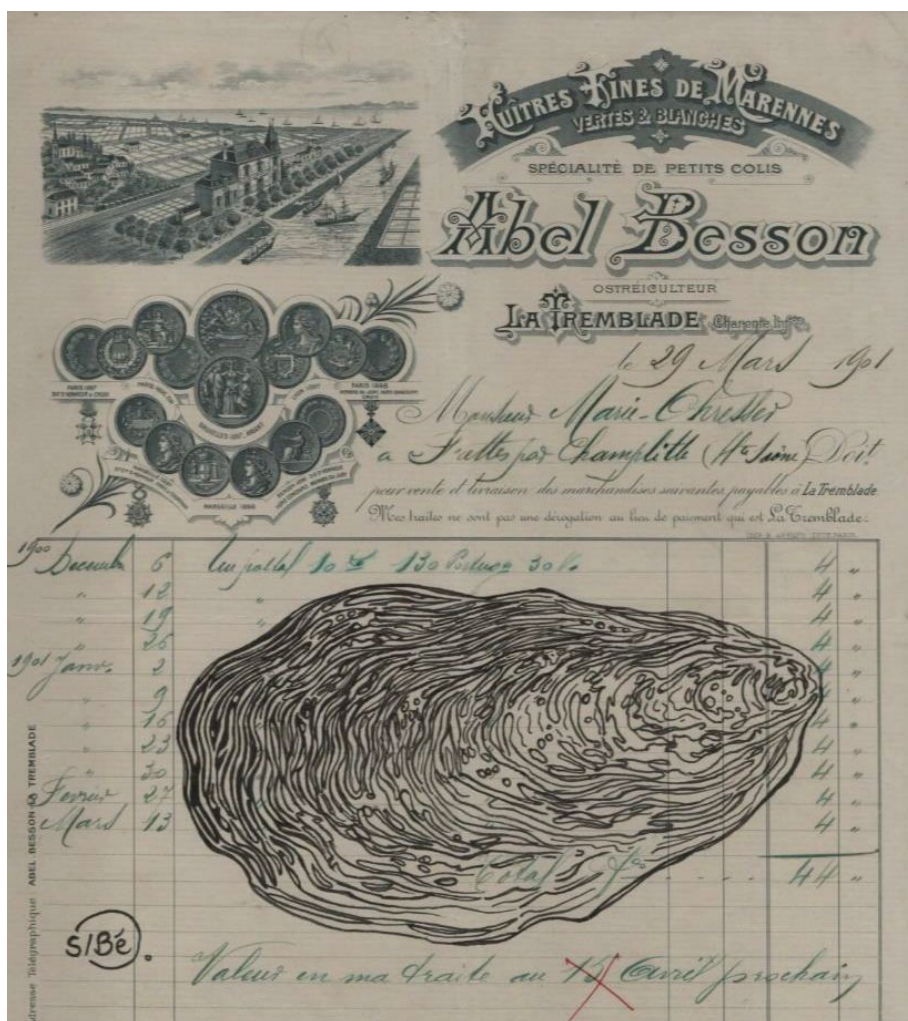 HUÎTRES FINES DE MARENNES
VERTES & BLANCHES
SPÉCIALITÉ DE PETITS COLIS
Abel Besson
OSTRÉICULTEUR
LA TREMBLADE Charente Infre
le 29 Mars 1901
Monsieur Marie-Chresser
a Frettes par Champlitte (Hte Saône) Doit
pour vente et livraison des marchandises suivantes payables à La Tremblade
Mes traites ne sont pas une dérogation au lieu de paiement qui est La Tremblade.
PARIS 1897
PARIS 1898
LYON 1897
BRUXELLES 1897 ARGENT
MARSEILLE 1898
1900
Decembre 6 Un postal 10 130 30 4 "
" 12 " 4 "
" 19 " 4 "
" 26 4 "
1901 Janv. 2 4 "
" 9 4 "
" 16 4 "
" 23 4 "
" 30 4 "
Fevrier 27 4 "
Mars 13 4 "
Total 44 "
Valeur en ma traite au 15 Avril prochain
S/Bé.
Adresse Télégraphique ABEL BESSON LA TREMBLADE